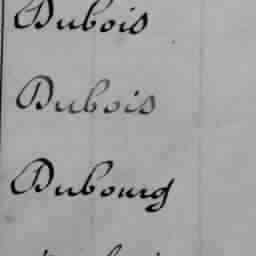 Dubois
Dubois
Dubourg